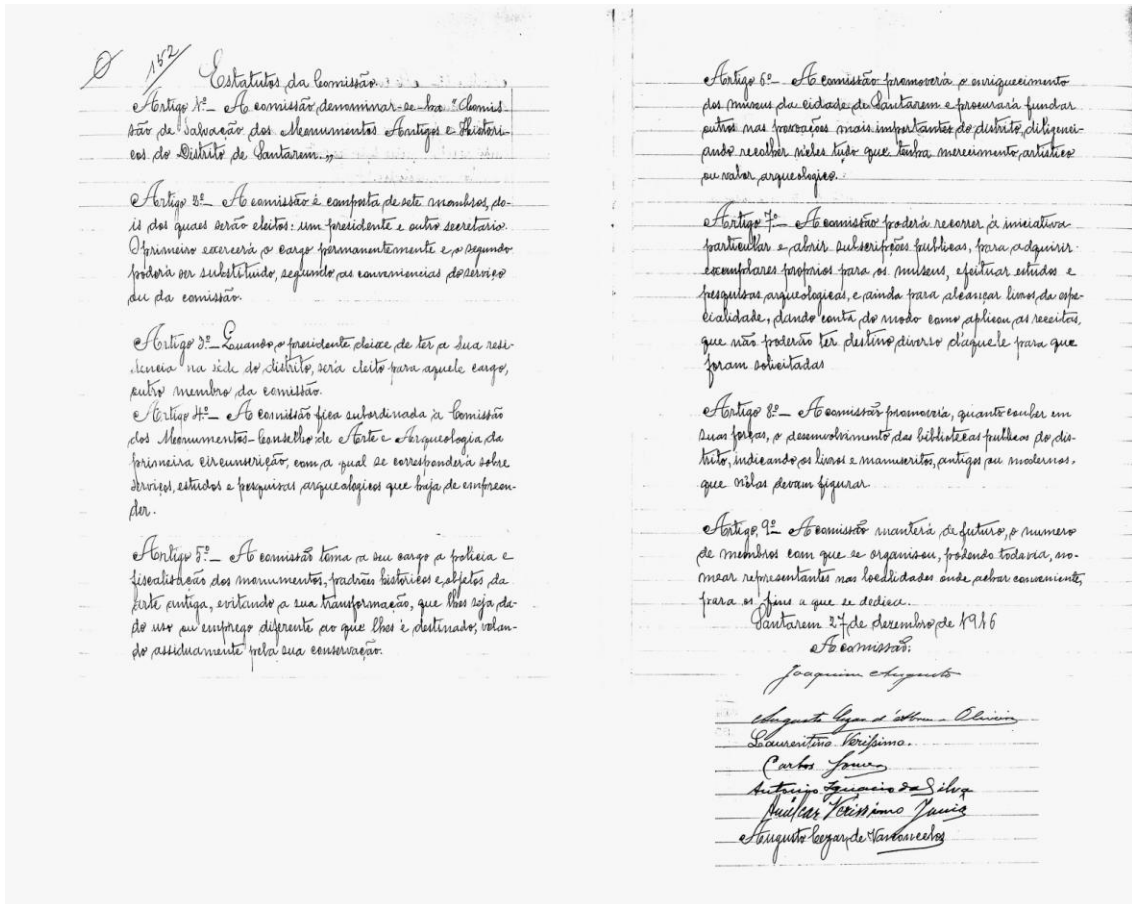 152
Estatutos da Comissão
Artigo 1º — A comissão, denominar-se-ha "Comis-
são de Salvação dos Monumentos Antigos e Histori-
cos do Distrito de Santarem.„
Artigo 2º — A comissão é composta de sete membros, do-
is dos quaes serão eleitos: um presidente e outro secretario.
O primeiro exercerá o cargo permanentemente e, o segundo
poderá ser substituido, segundo as conveniencias do serviço
ou da comissão.
Artigo 3º — Quando o presidente deixe de ter a sua resi-
dencia na séde do distrito, será eleito para aquele cargo,
outro membro da comissão.
Artigo 4º — A comissão fica subordinada á Comissão
dos Monumentos-Conselho de Arte e Arqueologia da
primeira circunscrição, com a qual se corresponderá sobre
serviços, estudos e pesquisas arquealogicos que haja de empreen-
der.
Artigo 5º — A comissão toma a seu cargo a policia e
fiscalisação dos monumentos, padrões historicos e objetos da
arte antiga, evitando a sua transformação, que lhes seja da-
do uso ou emprego diferente ao que lhes é destinado, velan-
do assiduamente pela sua conservação.
Artigo 6º — A comissão promoverá o enriquecimento
dos museus da cidade de Santarem e procurará fundar
outros nas povoações mais importantes do distrito, diligenci-
ando recolher n'eles tudo que tenha merecimento, artistico
ou valor, arqueologico.
Artigo 7º — A comissão poderá recorrer á iniciativa
particular e abrir subscripções publicas, para adquirir
exemplares proprios para os museus, efeituar estudos e
pesquisas arqueologicas, e ainda para alcançar livros da espe-
cialidade, dando conta do modo como aplicou as receitas,
que não poderão ter destino diverso d'aquele para que
foram solicitadas
Artigo 8º — A comissão promoverá, quanto couber em
suas forças, o desenvolvimento das bibliotecas publicas do dis-
trito, indicando os livros e manuscritos, antigos ou modernos,
que n'elas devam figurar.
Artigo, 9º — A comissão manterá de futuro, o numero
de membros com que se organisou, podendo todavia, no-
mear representantes nas localidades onde achar conveniente,
para os fins a que se dedica.
Santarem 27 de dezembro de 1916
A comissão:
Joaquim Augusto
Augusto Cezar d'Abreu e Oliveira
Laurentino Verissimo.
Carlos
Antonio Ignacio da Silva
Amilcar Verissimo
Augusto Cezar de Vasconcelos